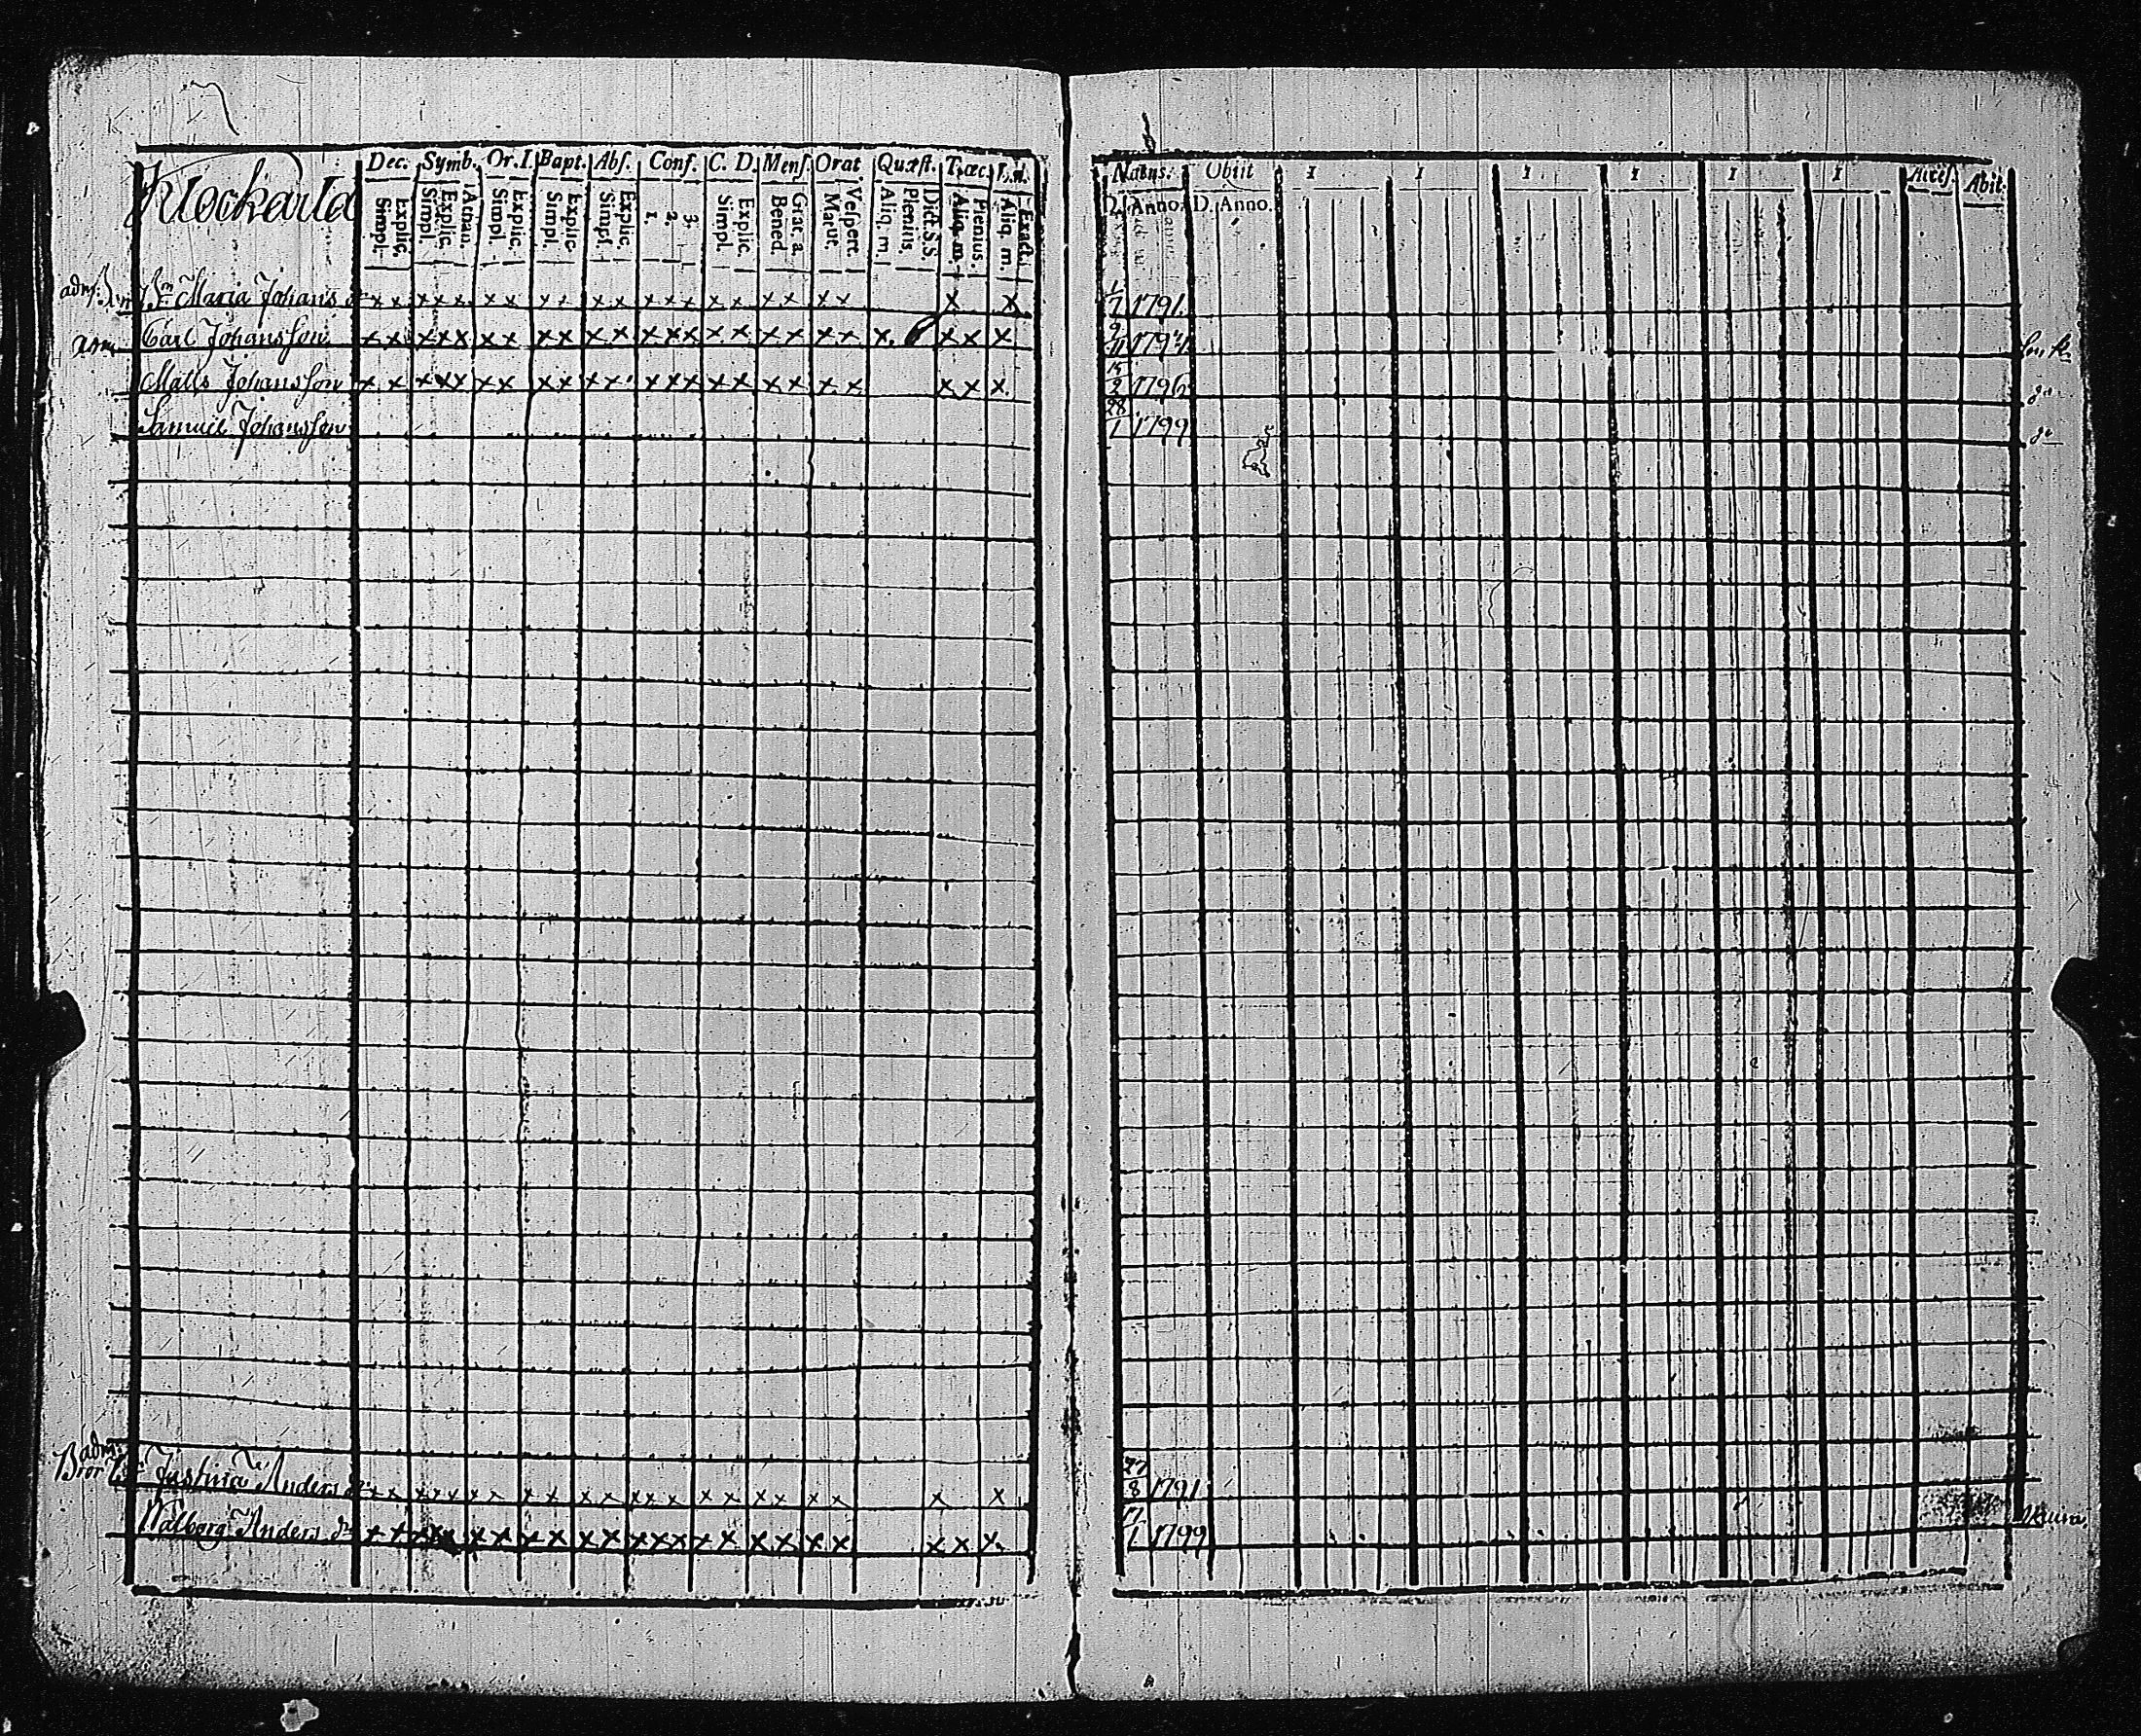 Klockarla
Dec. Symb. Or. I. Bapt. Abſ. Conf. C. D. Menſ. Orat Quæſt. T.œc. L.n.
Simpl. Explic. Simpl. Explic. Athan. Simpl. Explic. Simpl. Explic. Simpl. Explic. 1. 2. 3. Simpl. Explic. Bened. Grat. a. Matut. Veſpert. Aliq. m. Plenius. Dict. S.S. Aliq. m. Plenius. Aliq. m. Exact.
Natus. Obiit 1 1 1 1 1 1 Acceſ. Abit.
D. Anno. D. Anno.
adm. Maria Johans dr x x x x x x x x x x x x x x x x x x x x x x x 1/7 1791.
adm. Carl Johansson x x x x x x x x x x x x x x x x x x x x x x x x 9/11 1794
Matts Johansson x x x x x x x x x x x x x x x x x x x x x x x 15/2 1796
Samuel Johansson 28/1 1799
adm.
Justina Anders dr x x x x x x x x x x x x x x x x x x x x x x 27/8 1791
Walborg Anders dr x x x x x x x x x x x x x x x x x x x x x x x 17/1 1799